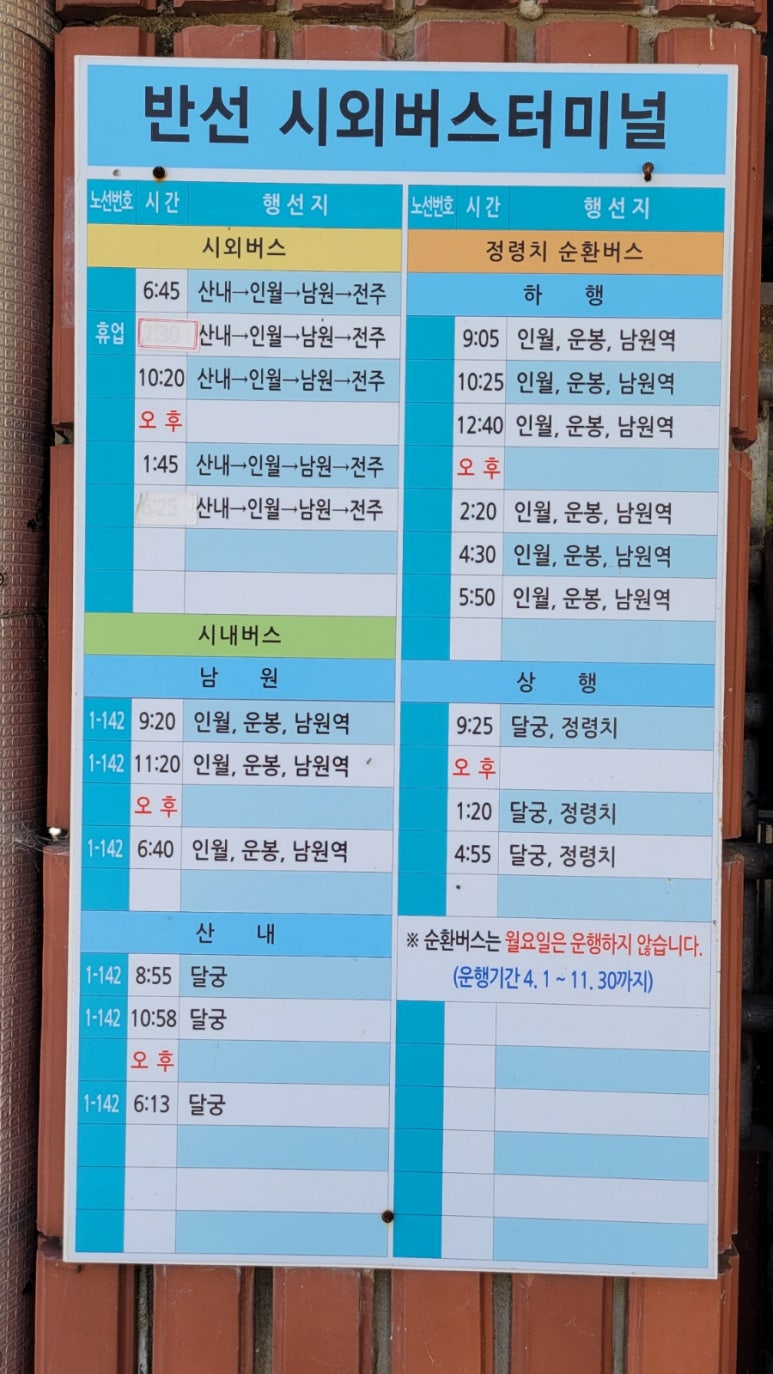 반선 시외버스터미널
노선번호 시간 행선지
시외버스
6:45 산내→인월→남원→전주
휴업 7:30 산내→인월→남원→전주
10:20 산내→인월→남원→전주
오후
1:45 산내→인월→남원→전주
산내→인월→남원→전주
시내버스
남 원
1-142 9:20 인월, 운봉, 남원역
1-142 11:20 인월, 운봉, 남원역
오후
1-142 6:40 인월, 운봉, 남원역
산 내
1-142 8:55 달궁
1-142 10:58 달궁
오후
1-142 6:13 달궁
노선번호 시간 행선지
정령치 순환버스
하 행
9:05 인월, 운봉, 남원역
10:25 인월, 운봉, 남원역
12:40 인월, 운봉, 남원역
오후
2:20 인월, 운봉, 남원역
4:30 인월, 운봉, 남원역
5:50 인월, 운봉, 남원역
상 행
9:25 달궁, 정령치
오후
1:20 달궁, 정령치
4:55 달궁, 정령치
※ 순환버스는 월요일은 운행하지 않습니다.
(운행기간 4. 1 ~ 11. 30까지)